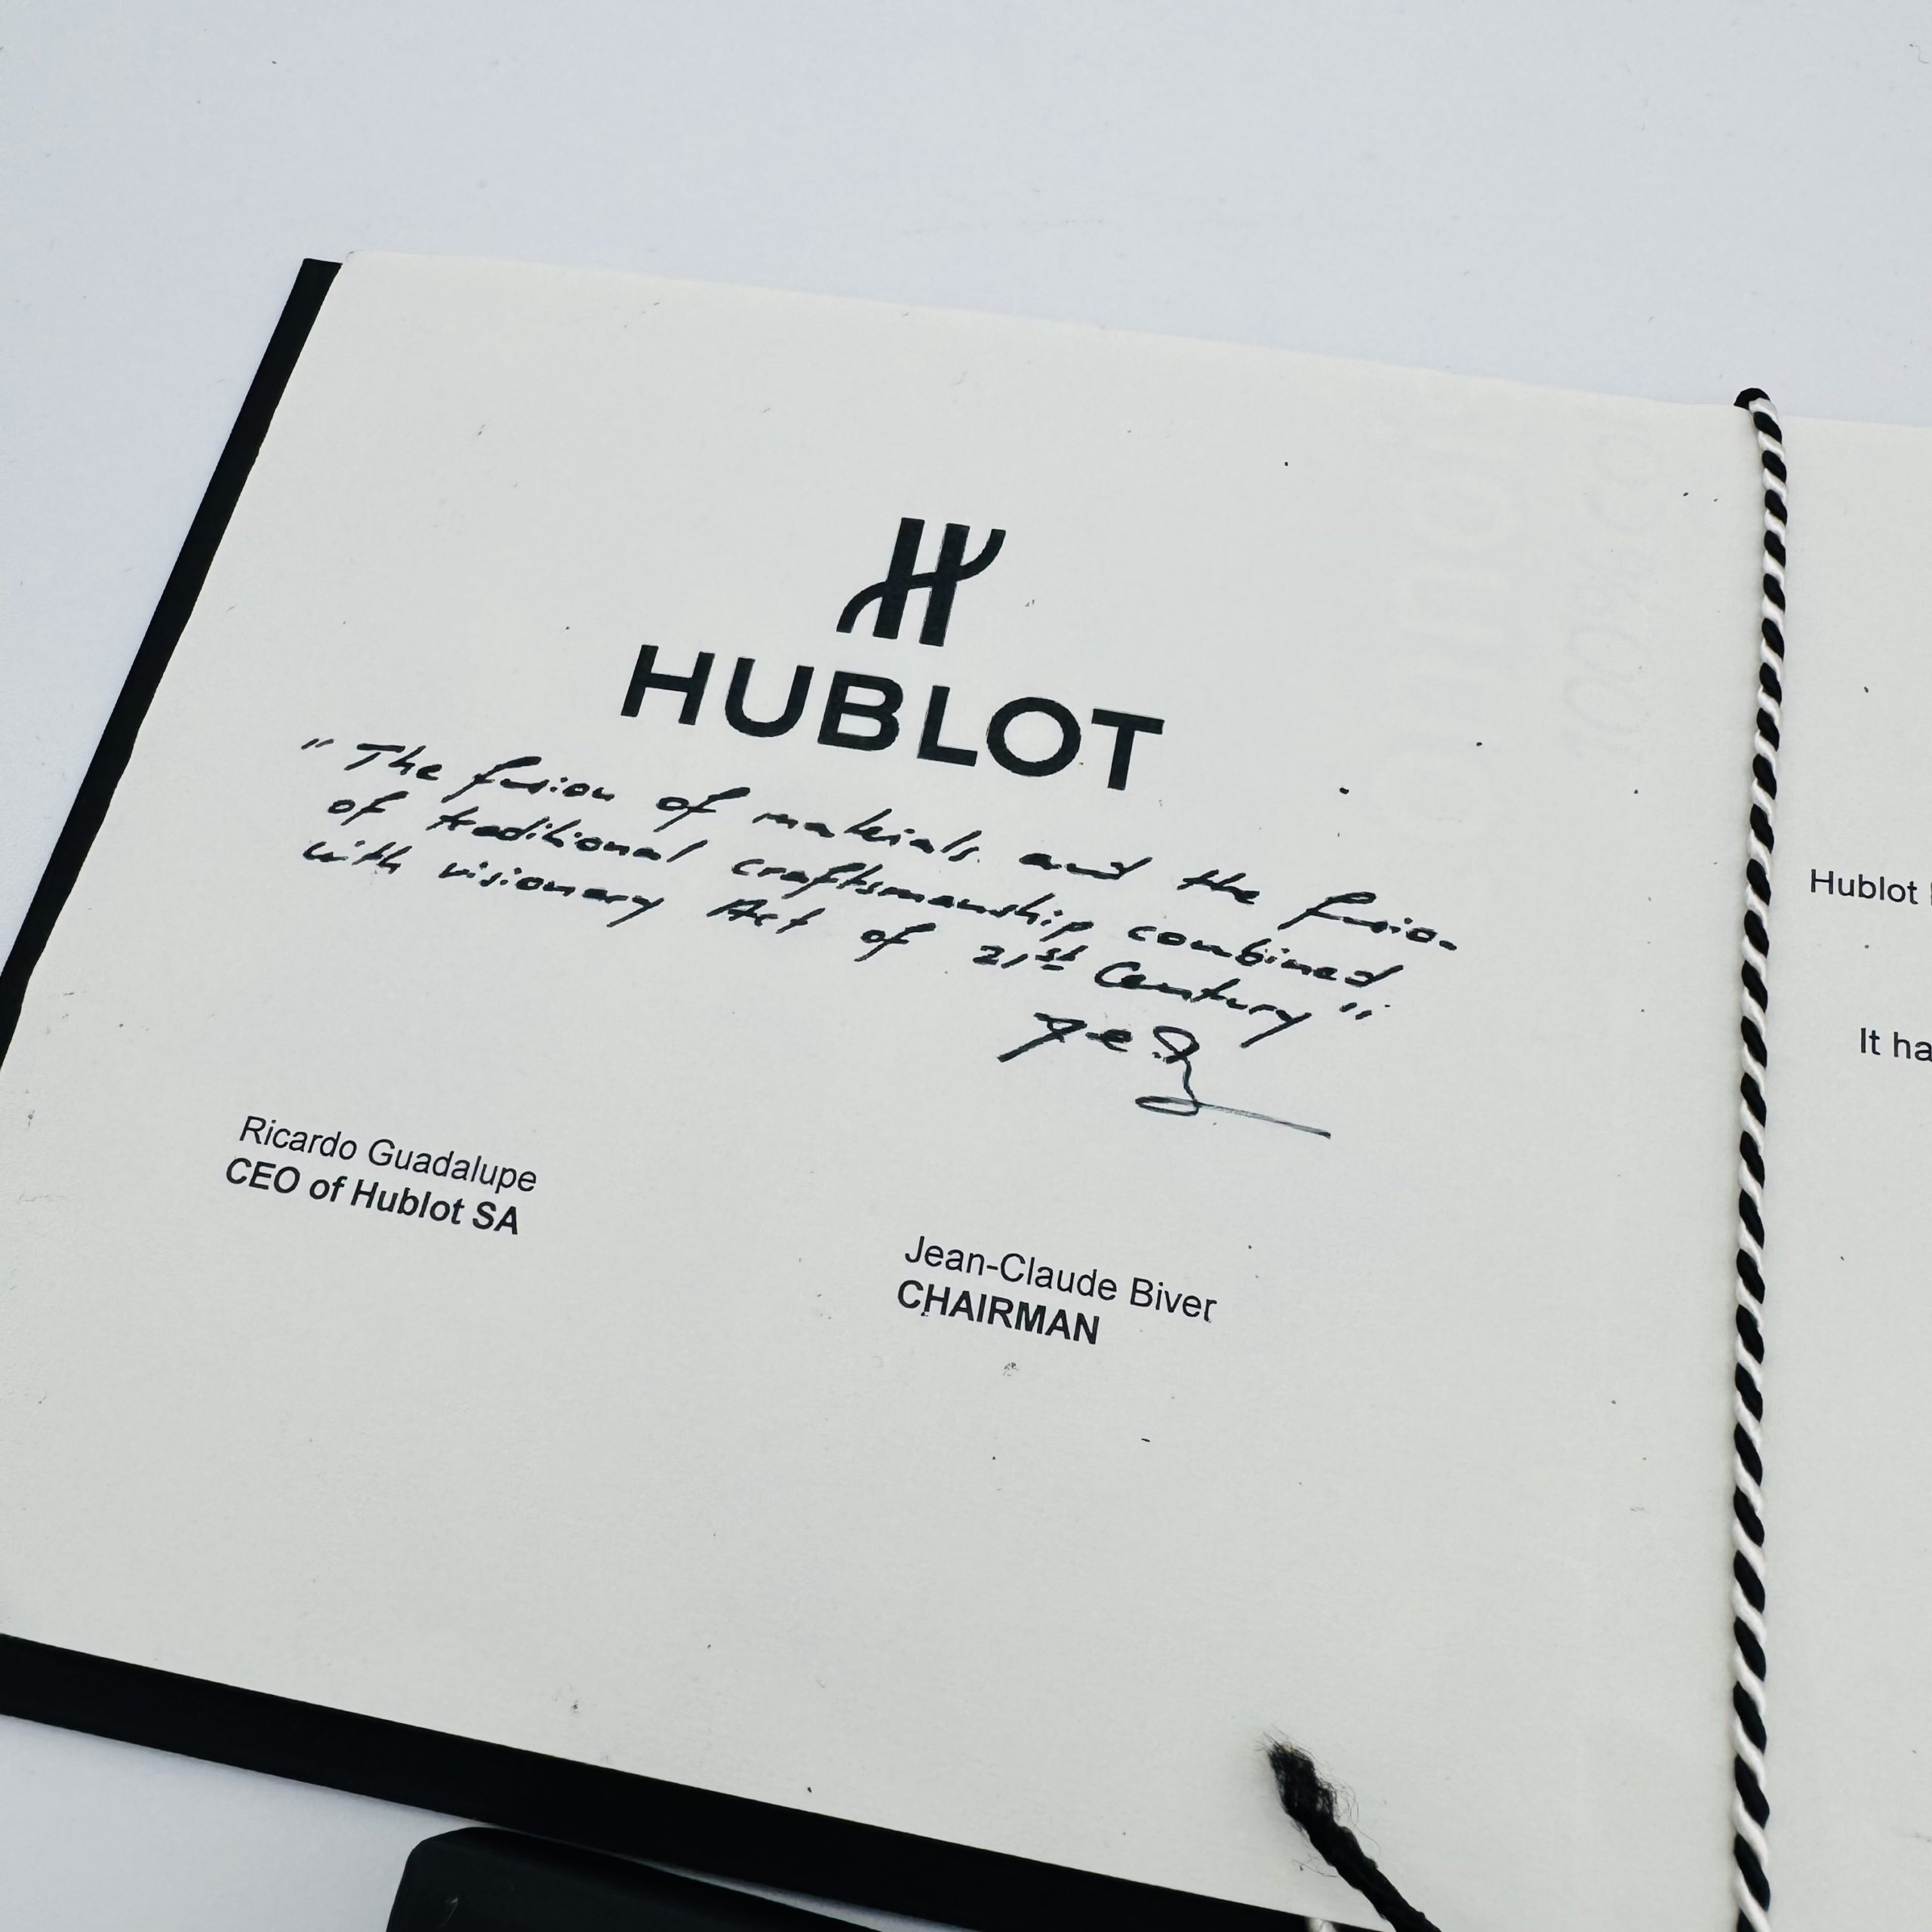 HUBLOT
"The fusion of materials and the fusion
of traditional craftsmanship combined
with visionary Act of 21st Century"
Ricardo Guadalupe
CEO of Hublot SA
Jean-Claude Biver
CHAIRMAN
Hublot
It ha